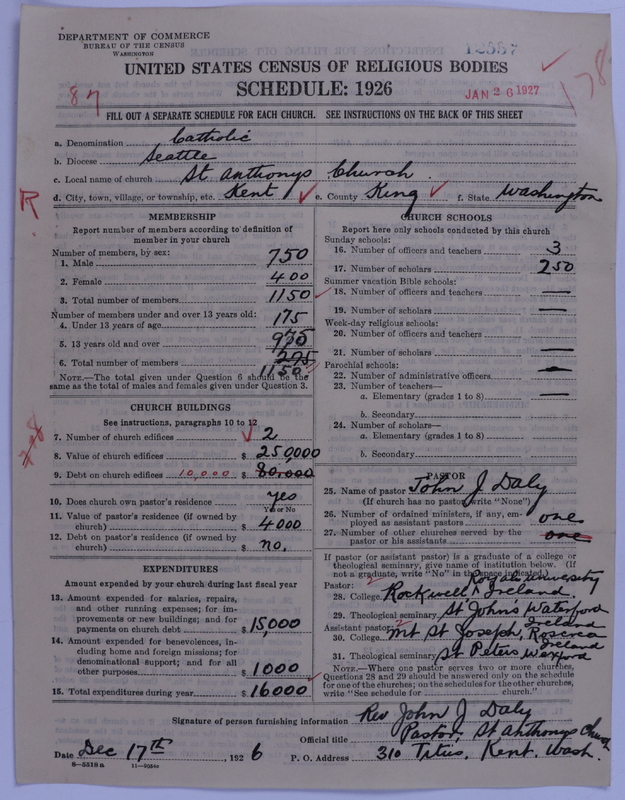 DEPARTMENT OF COMMERCE
BUREAU OF THE CENSUS
WASHINGTON
12667
UNITED STATES CENSUS OF RELIGIOUS BODIES
SCHEDULE: 1926
87
JAN 26 1927
178
FILL OUT A SEPARATE SCHEDULE FOR EACH CHURCH. SEE INSTRUCTIONS ON THE BACK OF THIS SHEET
a. Denomination Catholic
b. Diocese Seattle
c. Local name of church St Anthonys Church.
d. City, town, village, or township, etc. Kent e. County King f. State Washington
R
MEMBERSHIP
Report number of members according to definition of
member in your church
Number of members, by sex:
1. Male 750
2. Female 400
3. Total number of members 1150
Number of members under and over 13 years old:
4. Under 13 years of age 175
5. 13 years old and over 975
6. Total number of members 1150
NOTE.—The total given under Question 6 should be the
same as the total of males and females given under Question 3.
CHURCH BUILDINGS
See instructions, paragraphs 10 to 12
7. Number of church edifices 2
8. Value of church edifices $ 250,000
9. Debt on church edifices 10,000 $ 80,000
10. Does church own pastor's residence yes
Yes or No
11. Value of pastor's residence (if owned by
church) $ 4000
12. Debt on pastor's residence (if owned by
church) $ no.
EXPENDITURES
Amount expended by your church during last fiscal year
13. Amount expended for salaries, repairs,
and other running expenses; for im-
provements or new buildings; and for
payments on church debt $ 15,000
14. Amount expended for benevolences, in-
cluding home and foreign missions; for
denominational support; and for all
other purposes $ 1000
15. Total expenditures during year $ 16000
CHURCH SCHOOLS
Report here only schools conducted by this church
Sunday schools:
16. Number of officers and teachers 3
17. Number of scholars 250
Summer vacation Bible schools:
18. Number of officers and teachers —
19. Number of scholars —
Week-day religious schools:
20. Number of officers and teachers
21. Number of scholars —
Parochial schools:
22. Number of administrative officers —
23. Number of teachers—
a. Elementary (grades 1 to 8) —
b. Secondary
24. Number of scholars—
a. Elementary (grades 1 to 8)
b. Secondary
PASTOR
25. Name of pastor John J Daly
(If church has no pastor, write "None")
26. Number of ordained ministers, if any, em-
ployed as assistant pastors one
27. Number of other churches served by the
pastor or his assistants one
If pastor (or assistant pastor) is a graduate of a college or
theological seminary, give name of institution below. (If
not a graduate, write "No" in the space indicated.)
Pastor: University
28. College Rockwell Ireland.
29. Theological seminary St Johns Waterford
Ireland
Assistant pastor:
30. College Mt St Joseph, Roscrea
Ireland
31. Theological seminary St Peters Wexford
NOTE.—Where one pastor serves two or more churches,
Questions 28 and 29 should be answered only on the schedule
for one of the churches; on the schedules for the other churches,
write "See schedule for church."
Signature of person furnishing information Rev John J Daly
Official title Pastor, St Anthonys Church
Date Dec 17th, 1926 P. O. Address 310 Titus, Kent. Wash.
8-5518a